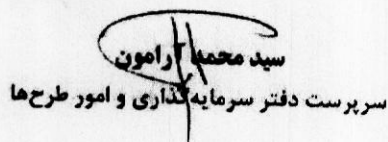 سید محمد آرامون
سرپرست دفتر سرمایه‌گذاری و امور طرح‌ها